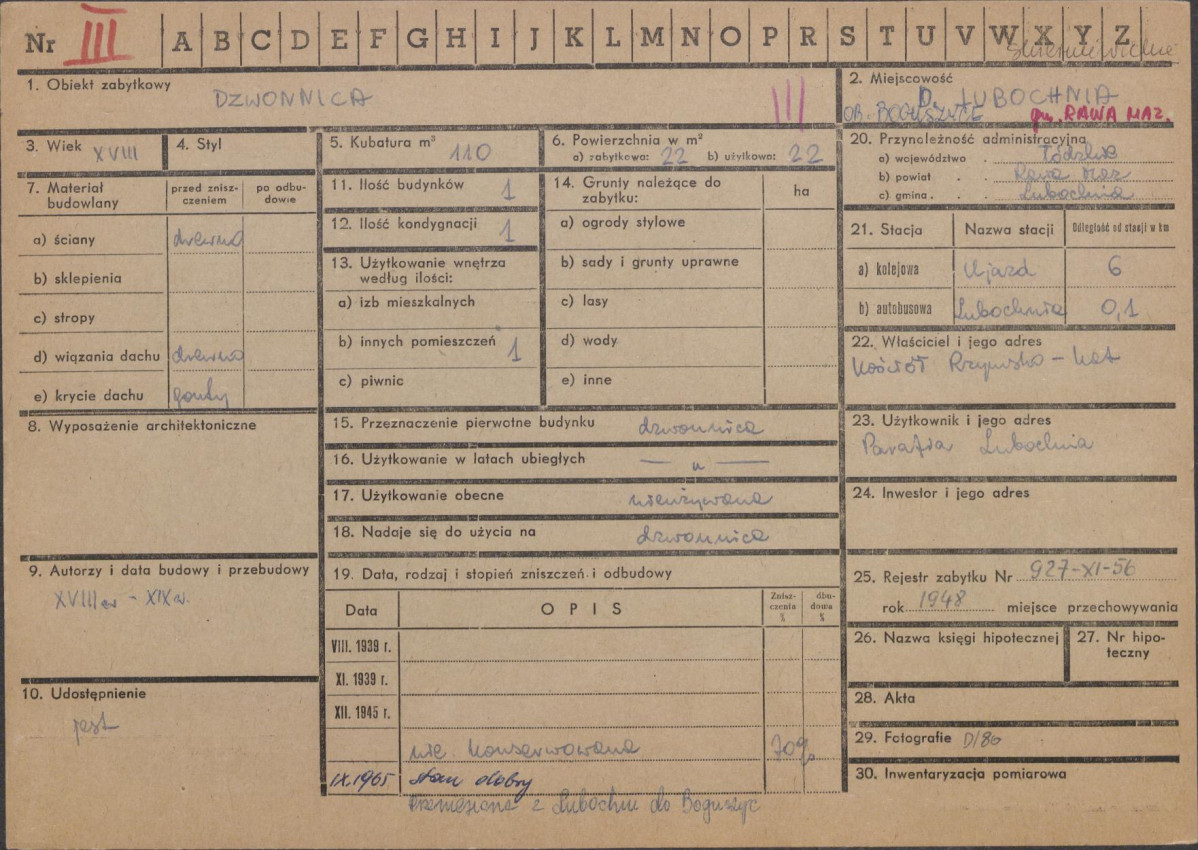 Nr III A B C D E F G H I J K L M N O P R S T U V W X Y Z
1. Obiekt zabytkowy
DZWONNICA
III
2. Miejscowość
D. LUBOCHNIA
OB. BOGUSZYCE gm. RAWA MAZ.
3. Wiek XVIII
4. Styl
5. Kubatura m³ 110
6. Powierzchnia w m²
a) zabytkowa: 22 b) użytkowa: 22
20. Przynależność administracyjna
a) województwo Łódzkie
b) powiat Rawa Maz
c) gmina Lubochnia
7. Materiał budowlany
przed zniszczeniem
po odbudowie
a) ściany drewno
b) sklepienia
c) stropy
d) wiązania dachu drewno
e) krycie dachu gonty
11. Ilość budynków 1
12. Ilość kondygnacji 1
13. Użytkowanie wnętrza
według ilości:
a) izb mieszkalnych
b) innych pomieszczeń 1
c) piwnic
14. Grunty należące do
zabytku:
ha
a) ogrody stylowe
b) sady i grunty uprawne
c) lasy
d) wody
e) inne
21. Stacja Nazwa stacji Odległość od stacji w km
a) kolejowa Ujazd 6
b) autobusowa Lubochnia 0,1
22. Właściciel i jego adres
Kościół Rzymsko-Kat
8. Wyposażenie architektoniczne
15. Przeznaczenie pierwotne budynku dzwonnica
16. Użytkowanie w latach ubiegłych — „ —
17. Użytkowanie obecne nieużywana
18. Nadaje się do użycia na dzwonnica
23. Użytkownik i jego adres
Parafia Lubochnia
24. Inwestor i jego adres
9. Autorzy i data budowy i przebudowy
XVIII w - XIX w.
10. Udostępnienie
jest
19. Data, rodzaj i stopień zniszczeń i odbudowy
Data OPIS Zniszczenia % dbudowa %
VIII. 1939 r.
XI. 1939 r.
XII. 1945 r.
nie konserwowana 70%
IX.1965 stan dobry
przeniesiona z Lubochni do Boguszyc
25. Rejestr zabytku Nr 927-XI-56
rok 1948 miejsce przechowywania
26. Nazwa księgi hipotecznej
27. Nr hipoteczny
28. Akta
29. Fotografie D/80
30. Inwentaryzacja pomiarowa